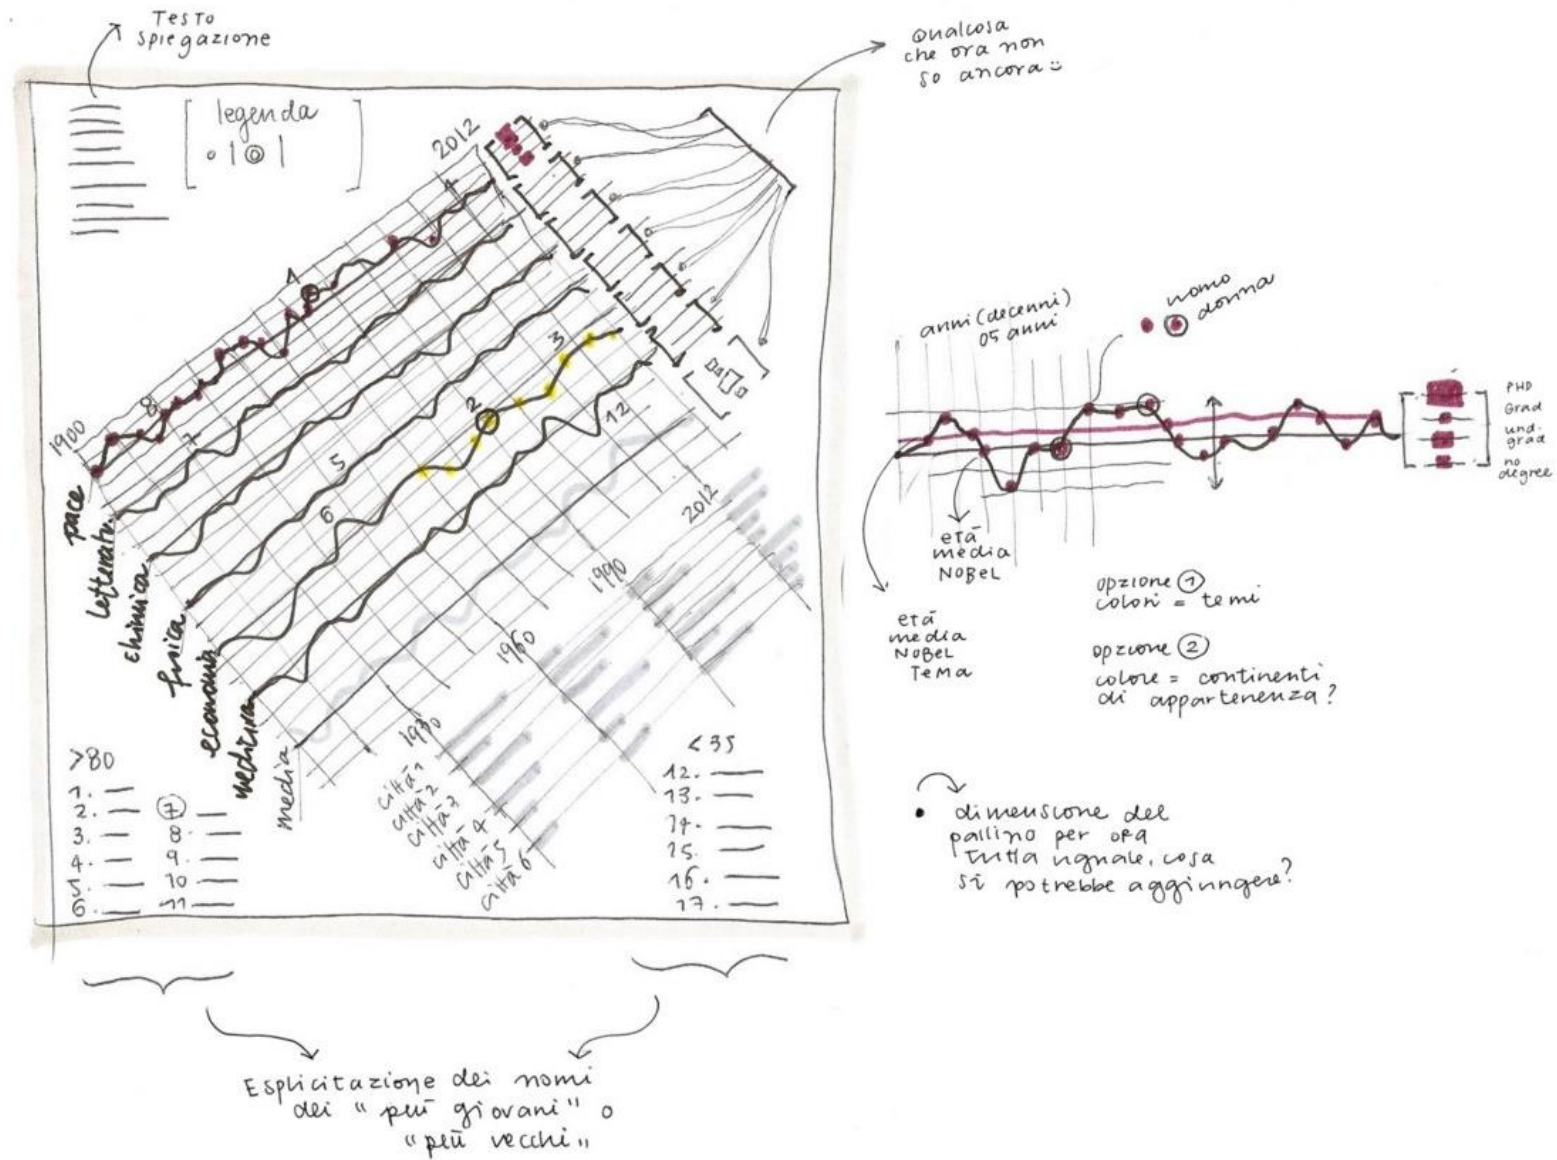 Testo
spiegazione
Qualcosa
che ora non
so ancora
legenda
2012
1900
1
8
7
5
6
2
3
12
pace
letteratu
chimica
fisica
economia
medicina
media
2012
1990
1960
1930
città 1
città 2
città 3
città 4
città 5
città 6
>80
1.
2.
3.
4.
5.
6.
7
8
9.
10
11
<35
12.
13.
14.
15.
16.
17.
Esplicitazione dei nomi
dei "più giovani" o
"più vecchi"
uomo
donna
anni (decenni)
o 5 anni
PHD
Grad
und.
grad
no
degree
età
media
NOBEL
età
media
NOBEL
TEMA
opzione 1
colori = temi
opzione 2
colore = continenti
di appartenenza?
dimensione del
pallino per ora
tutta uguale, cosa
si potrebbe aggiungere?